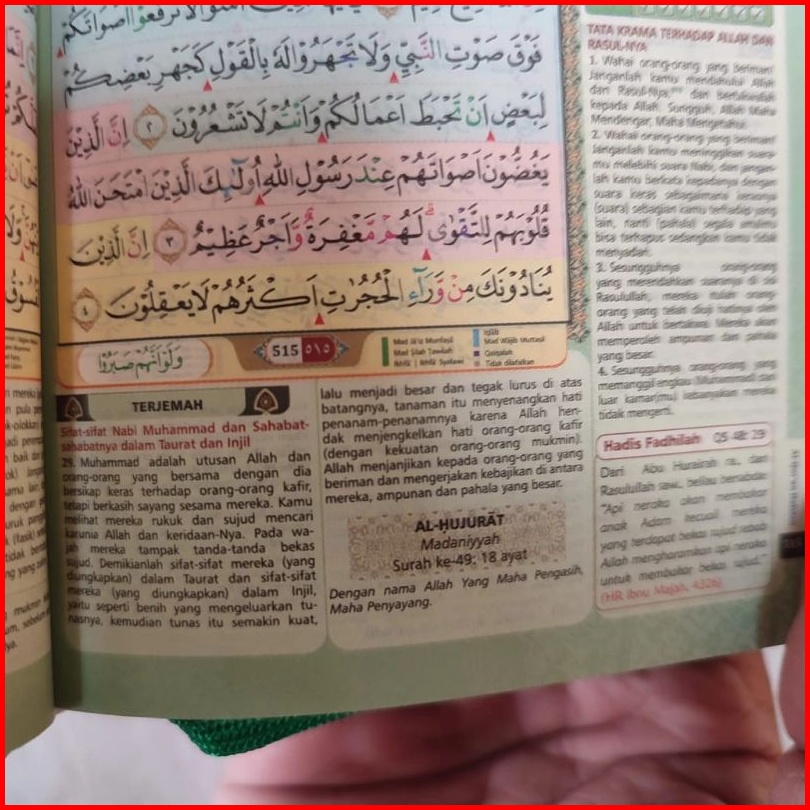 فَوْقَ صَوْتِ النَّبِيِّ وَلَا تَجْهَرُوْا لَهٗ بِالْقَوْلِ كَجَهْرِ بَعْضِكُمْ
لِبَعْضٍ اَنْ تَحْبَطَ اَعْمَالُكُمْ وَاَنْتُمْ لَا تَشْعُرُوْنَ ٢ اِنَّ الَّذِيْنَ
يَغُضُّوْنَ اَصْوَاتَهُمْ عِنْدَ رَسُوْلِ اللّٰهِ اُولٰۤىِٕكَ الَّذِيْنَ امْتَحَنَ اللّٰهُ
قُلُوْبَهُمْ لِلتَّقْوٰىۗ لَهُمْ مَّغْفِرَةٌ وَّاَجْرٌ عَظِيْمٌ ٣ اِنَّ الَّذِيْنَ
يُنَادُوْنَكَ مِنْ وَّرَاۤءِ الْحُجُرٰتِ اَكْثَرُهُمْ لَا يَعْقِلُوْنَ ٤
وَلَوْ اَنَّهُمْ صَبَرُوْا
515 ٥١٥
Mad Ja'iz Munfasil
Mad Silah Tawilah
Iqlab
Mad Wajib Muttasil
Qalqalah
Tidak dilafalkan
TERJEMAH
Sifat-sifat Nabi Muhammad dan Sahabat-
sahabatnya dalam Taurat dan Injil
29. Muhammad adalah utusan Allah dan
orang-orang yang bersama dengan dia
bersikap keras terhadap orang-orang kafir,
tetapi berkasih sayang sesama mereka. Kamu
melihat mereka rukuk dan sujud mencari
karunia Allah dan keridaan-Nya. Pada wa-
jah mereka tampak tanda-tanda bekas
sujud. Demikianlah sifat-sifat mereka (yang
diungkapkan) dalam Taurat dan sifat-sifat
mereka (yang diungkapkan) dalam Injil,
yaitu seperti benih yang mengeluarkan tu-
nasnya, kemudian tunas itu semakin kuat,
lalu menjadi besar dan tegak lurus di atas
batangnya, tanaman itu menyenangkan hati
penanam-penanamnya karena Allah hen-
dak menjengkelkan hati orang-orang kafir
(dengan kekuatan orang-orang mukmin).
Allah menjanjikan kepada orang-orang yang
beriman dan mengerjakan kebajikan di antara
mereka, ampunan dan pahala yang besar.
AL-ḤUJURĀT
Madaniyyah
Surah ke-49: 18 ayat
Dengan nama Allah Yang Maha Pengasih,
Maha Penyayang.
TATA KRAMA TERHADAP ALLAH DAN
RASUL-NYA
1. Wahai orang-orang yang beriman!
Janganlah kamu mendahului Allah
dan Rasul-Nya, dan bertakwalah
kepada Allah. Sungguh, Allah Maha
Mendengar, Maha Mengetahui.
2. Wahai orang-orang yang beriman!
Janganlah kamu meninggikan suara-
mu melebihi suara Nabi, dan jangan-
lah kamu berkata kepadanya dengan
suara keras sebagaimana kerasnya
(suara) sebagian kamu terhadap yang
lain, nanti (pahala) segala amalmu
bisa terhapus sedangkan kamu tidak
menyadari.
3. Sesungguhnya orang-orang
yang merendahkan suaranya di sisi
Rasulullah, mereka itulah orang-
orang yang telah diuji hatinya oleh
Allah untuk bertakwa. Mereka akan
memperoleh ampunan dan pahala
yang besar.
4. Sesungguhnya orang-orang yang
memanggil engkau (Muhammad) dari
luar kamar(mu) kebanyakan mereka
tidak mengerti.
Hadis Fadhilah QS 48: 29
Dari Abu Hurairah ra., dari
Rasulullah saw., beliau bersabda:
"Api neraka akan membakar
anak Adam kecuali mereka
yang terdapat bekas sujud
Allah mengharamkan api neraka
untuk membakar bekas sujud."
(HR Ibnu Majah, 4326)